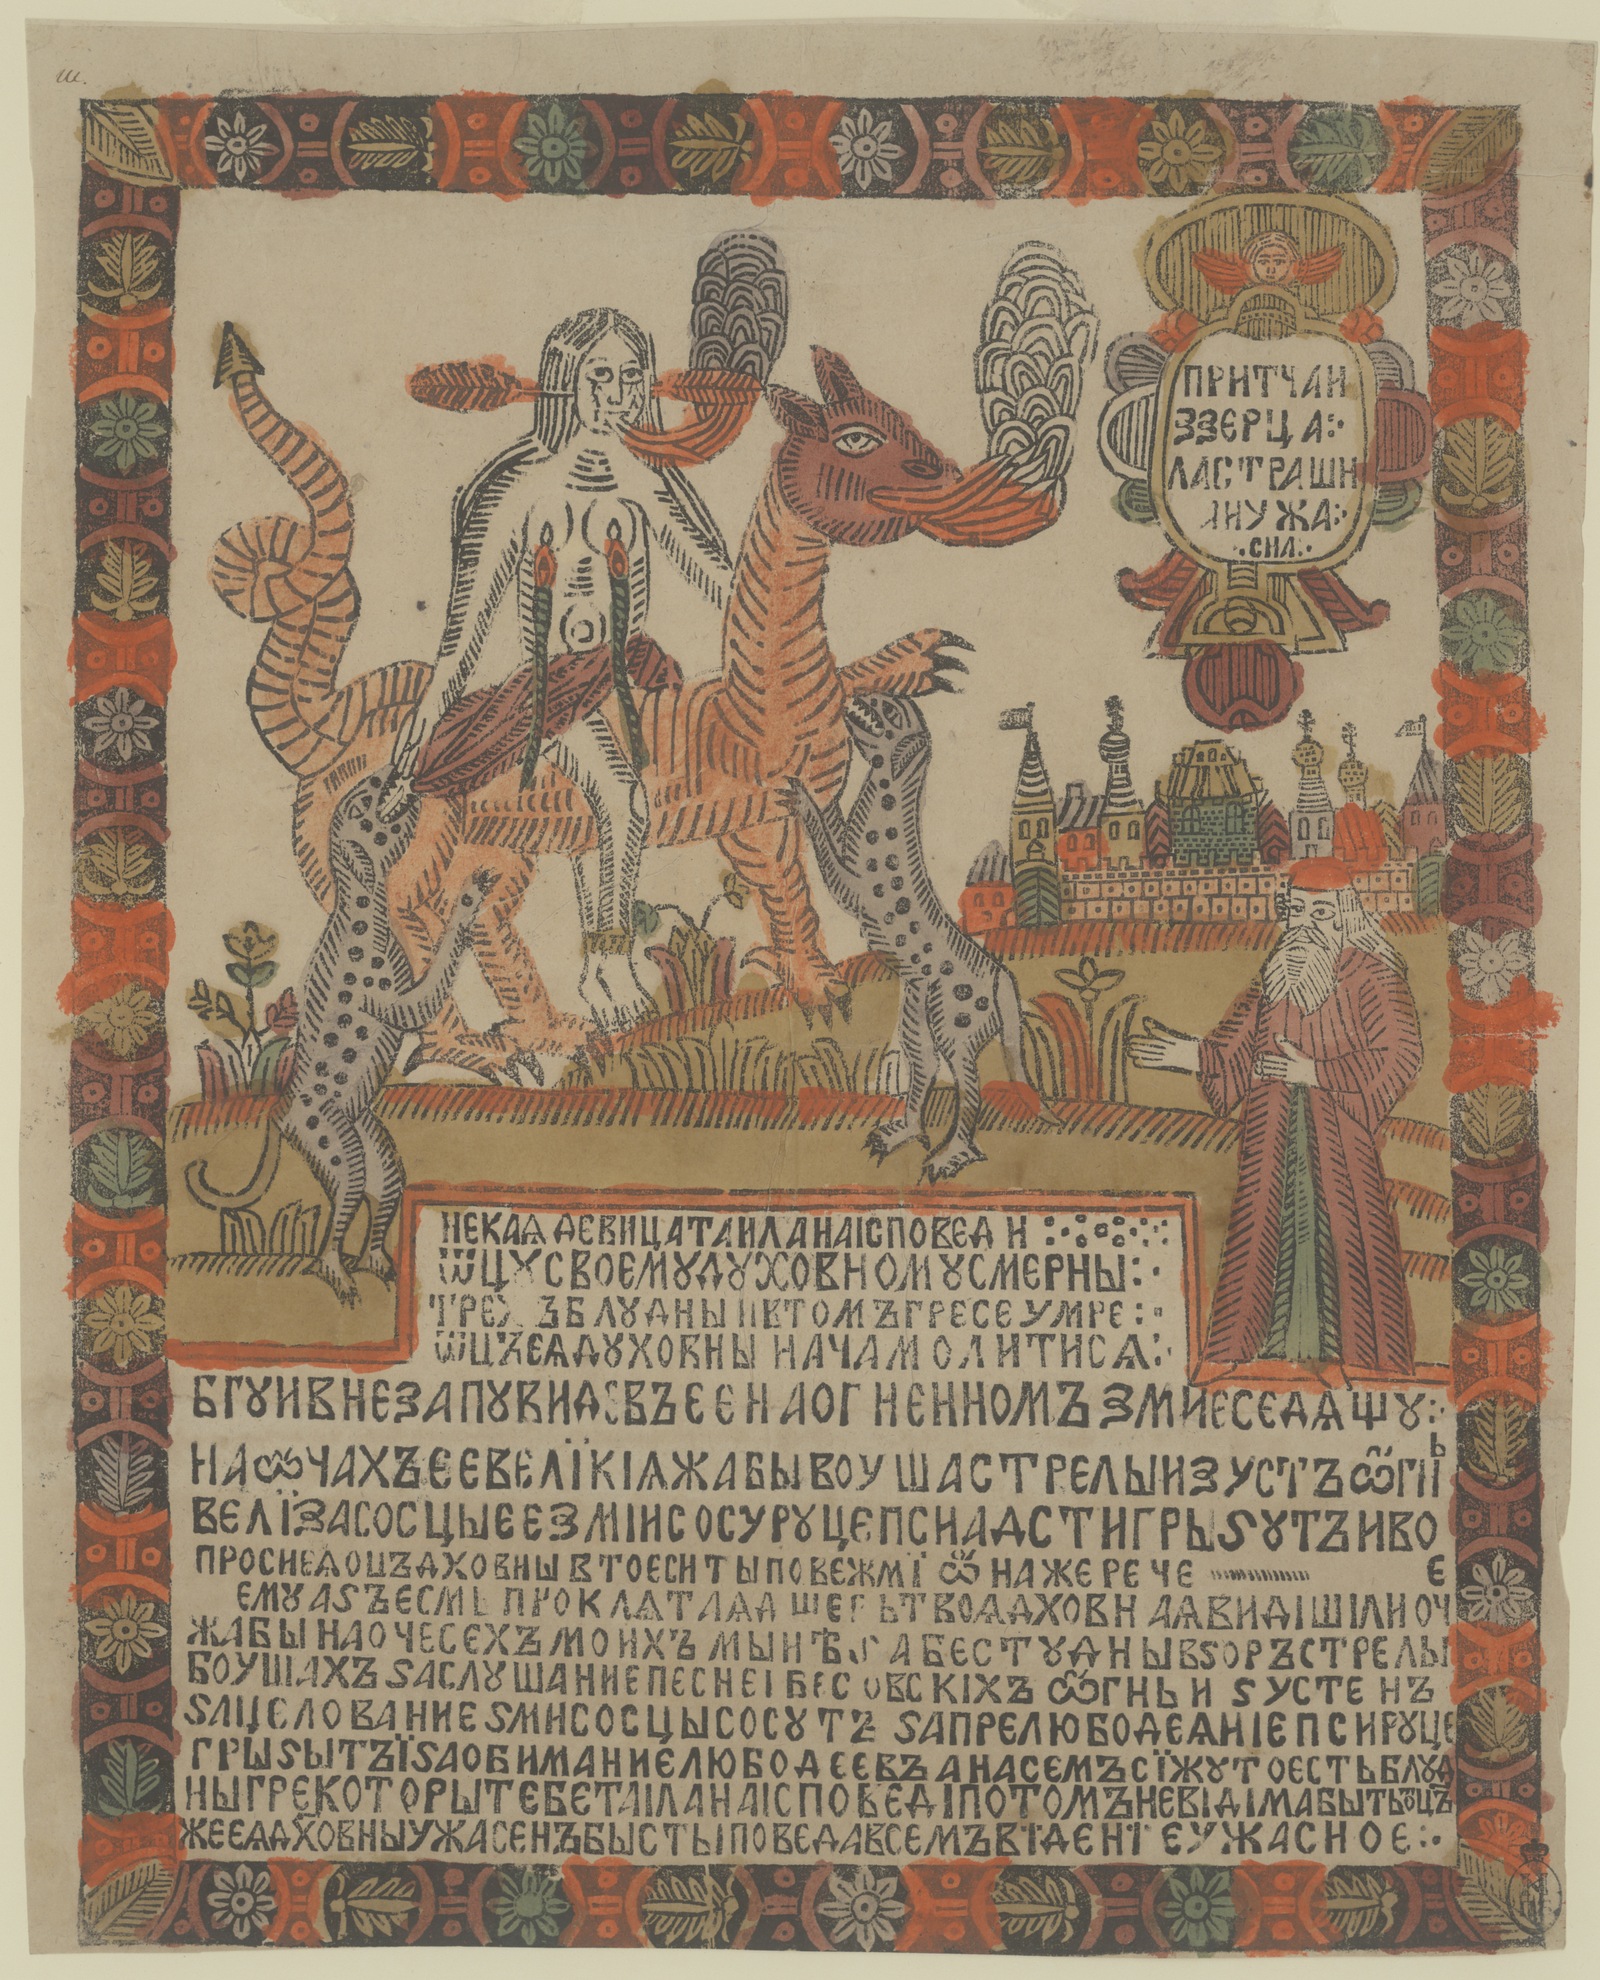 ПРИТЧАИ
ЗЗЕРЦА:·
ЛАСТРАШН
АНУЖА:·
·СНА·
НЕКАѦ ДЕВИЦАТАИЛАНАІСПОВЕДИ
ѾЦꙊСВОЕМꙊДꙊХОВНОМꙊСМЕРНЫ:·
ТРЕХЪБЛꙊДНЫИВТОМЪГРЕСЕУМРЕ:·
ѾЦЪЕѦДꙊХОВНЫ НАЧАМОЛИТИСѦ:·
БГꙊИВНЕЗАПꙊВИДЕВЪЕЕНАОГНЕННОМЪЗМИЕСЕДѦЩꙊ:·
НАѾЧАХЪЕЕВЕЛЇКІѦЖАБЫВОУШАСТРЕЛЫИЗУСТЪѾГНЬ
ВЕЛЇЗАСОСЦЫЕЕЗМІИСОСУРꙊЦЕПСНАДСТИГРЫЅꙊТЪИВО
ПРОСИЕѦОЦЪДХОВНЫВТОЕСИТЫПОВЕЖМЇ ѾНАЖЕРЕЧЕ
ЕМꙊАЅЪЕСМЬПРОКЛѦТАѦДЩЕРЬТВОѦДХОВНАѦВИДІШІЛИОЧ
ЖАБЫНАОЧЕСЕХЪМОИХЪ БЕСТꙊДНЫВЅОРЪСТРЕЛЫ
ВОУШАХЪЅАСЛꙊШАНИЕПЕСНЕІБЕСОВСКІХЪѾГНЬИЅУСТЕНЪ
ЅАЦЕЛОВАНИЕЅМИСОСЦЫСОСꙊТЪ ЅАПРЕЛЮБОДЕѦНІЕПСИРꙊЦЕ
ГРЫЅЫТЪЇЅАОБИМАНИЕЛЮБОДЕЕВЪАНАСЕМЪСЇЖꙊТОЕСТЬБЛꙊД
НЫГРЕКОТОРЫТЕБЕТАІЛАНАІСПОВЕДІПОТОМЪНЕВІДІМАБЫТЬѾЦЪ
ЖЕЕѦДХОВНЫУЖАСЕНЪБЫСТЬІПОВЕДАВСЕМЪВІДЕНІЕУЖАСНОЕ:·